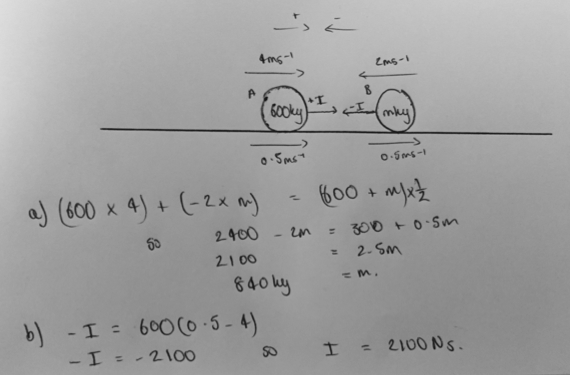 + -
4ms⁻¹ 2ms⁻¹
A B
600kg +I -I mkg
0.5ms⁻¹ 0.5ms⁻¹
a) (600 × 4) + (-2 × m) = (600 + m) × ½
so 2400 - 2m = 300 + 0.5m
2100 = 2.5m
840kg = m.
b) -I = 600(0.5 - 4)
-I = -2100 so I = 2100Ns.